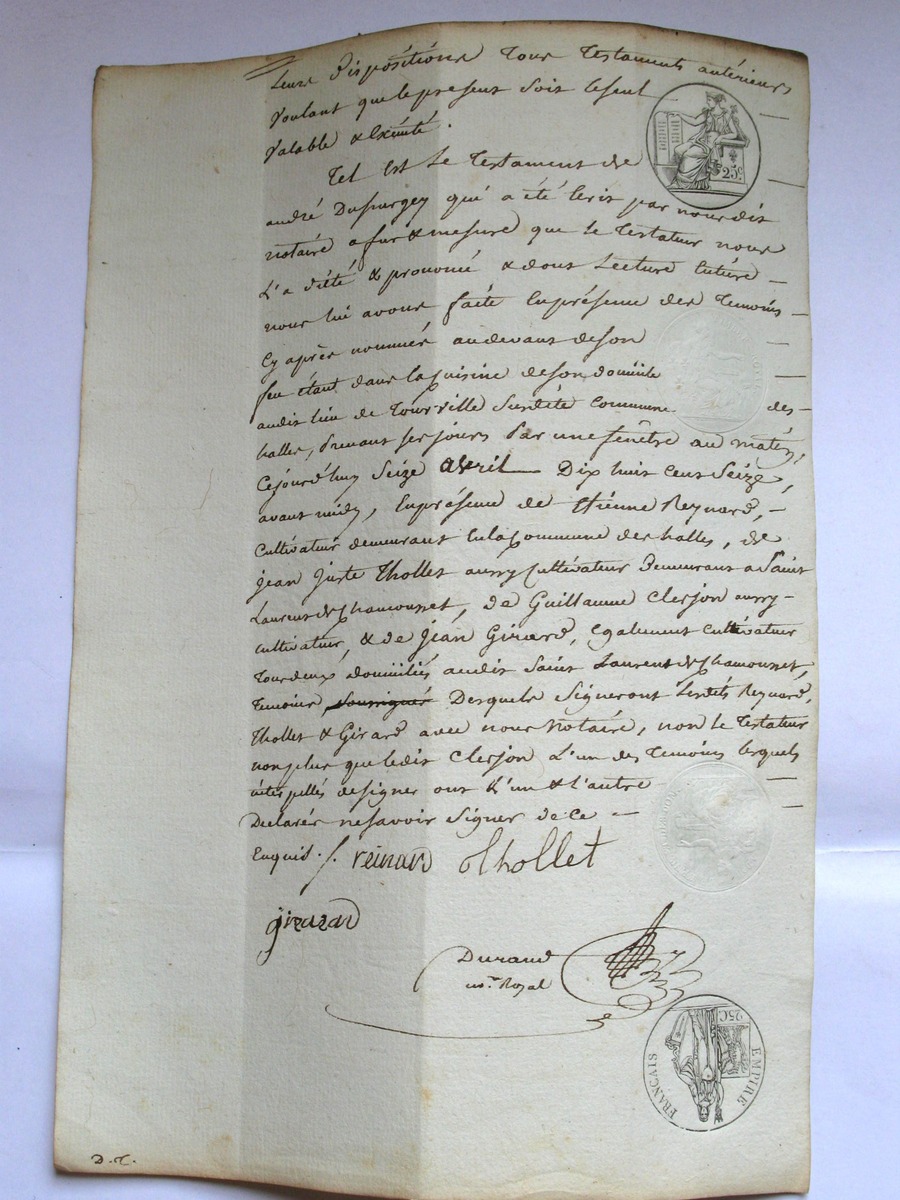 leurs dispositions tous testaments antérieurs
voulant que le présent soit le seul
valable & exécuté.
Tel est le testament de
andré Dupurgey qui a été écrit par nous dit
notaire a fur & mesure que le testateur nous
l'a dicté & prononcé & dont lecture entière
nous lui avons faite en présence des temoins
cy après nommés au devant de son
feu étant dans la cuisine de son domicile
audit lieu de Tourville susdite commune des
halles, prenant ses jours par une fenêtre au matin,
Cejourd'huy seize avril Dix huit cent seize,
avant midy, en présence de Etienne Reynard,
cultivateur demeurant en la commune des halles, de
jean juste Thollet aussy cultivateur Demeurant a Saint
Laurent de Chamousset, de Guillaume Clerjon aussy
cultivateur, & de jean Girard, egalement cultivateur
tous deux domiciliés audit Saint Laurent de Chamousset,
temoins soussignés Desquels signeront lesdits Reynard,
Thollet & Girard avec nous notaire, non le testateur
non plus que ledit Clerjon l'un des temoins lesquels
interpellés de signer ont l'un & l'autre
Declarés ne savoir signer de ce
Enquis. reinard Thollet
girard
Durand
no.re Royal
D. T.
25c.
25C
EMPIRE
FRANÇAIS